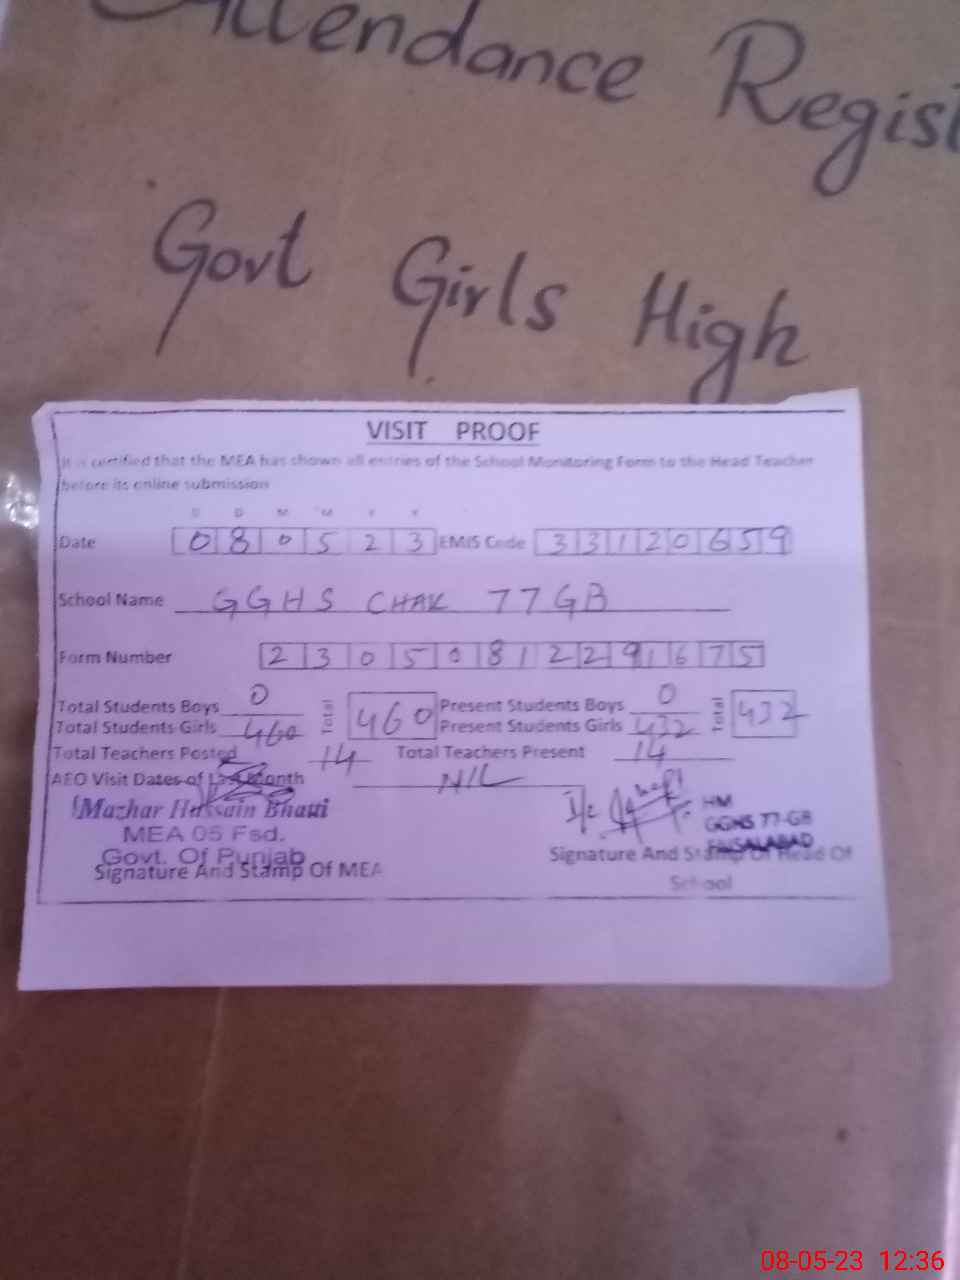 Attendance Regist
Govt Girls High
VISIT PROOF
It is certified that the MEA has shown all entries of the School Monitoring Form to the Head Teacher
before its online submission
D D M M Y Y
Date 080523 EMIS Code 33120659
School Name GGHS CHAK 77 GB
Form Number 23050812291675
Total Students Boys 0 Total 460 Present Students Boys 0 Total 432
Total Students Girls 460 Present Students Girls 432
Total Teachers Posted 14 Total Teachers Present 14
AEO Visit Dates of Last Month NIL
Mazhar Hussain Bhatti I/c HM
MEA 05 Fsd. GGHS 77-GB
Govt. Of Punjab FAISALABAD
Signature And Stamp Of MEA Signature And Stamp Of Head Of
School
08-05-23 12:36